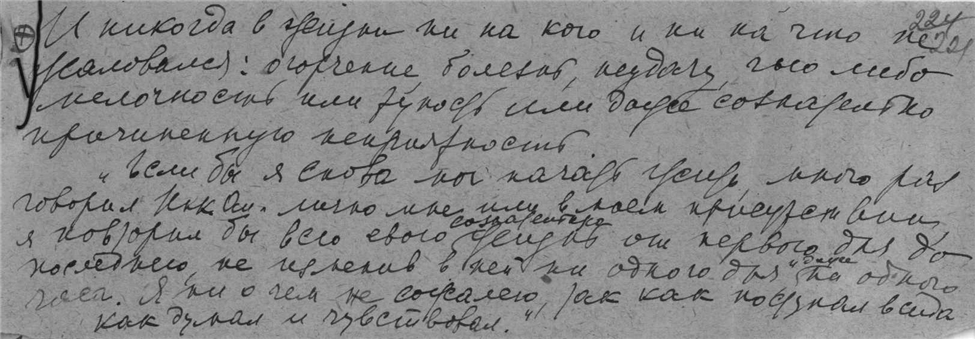 224
И никогда в жизни ни на кого и ни на что не
жаловался: огорчение болезнь, неудачу, чью либо
мелочность или тупость или даже сознательно
причиненную неприятность.
„Если бы я снова мог начать жизнь, много раз
говорил Ник Ал. лично мне или в моем присутствии,
сознательно
я повторил бы всю свою жизнь от первого дня до
последнего, не изменив в ней ни одного дня, даже ни одного
часа. Я ни о чем не сожалею, так как поступал всегда
как думал и чувствовал."